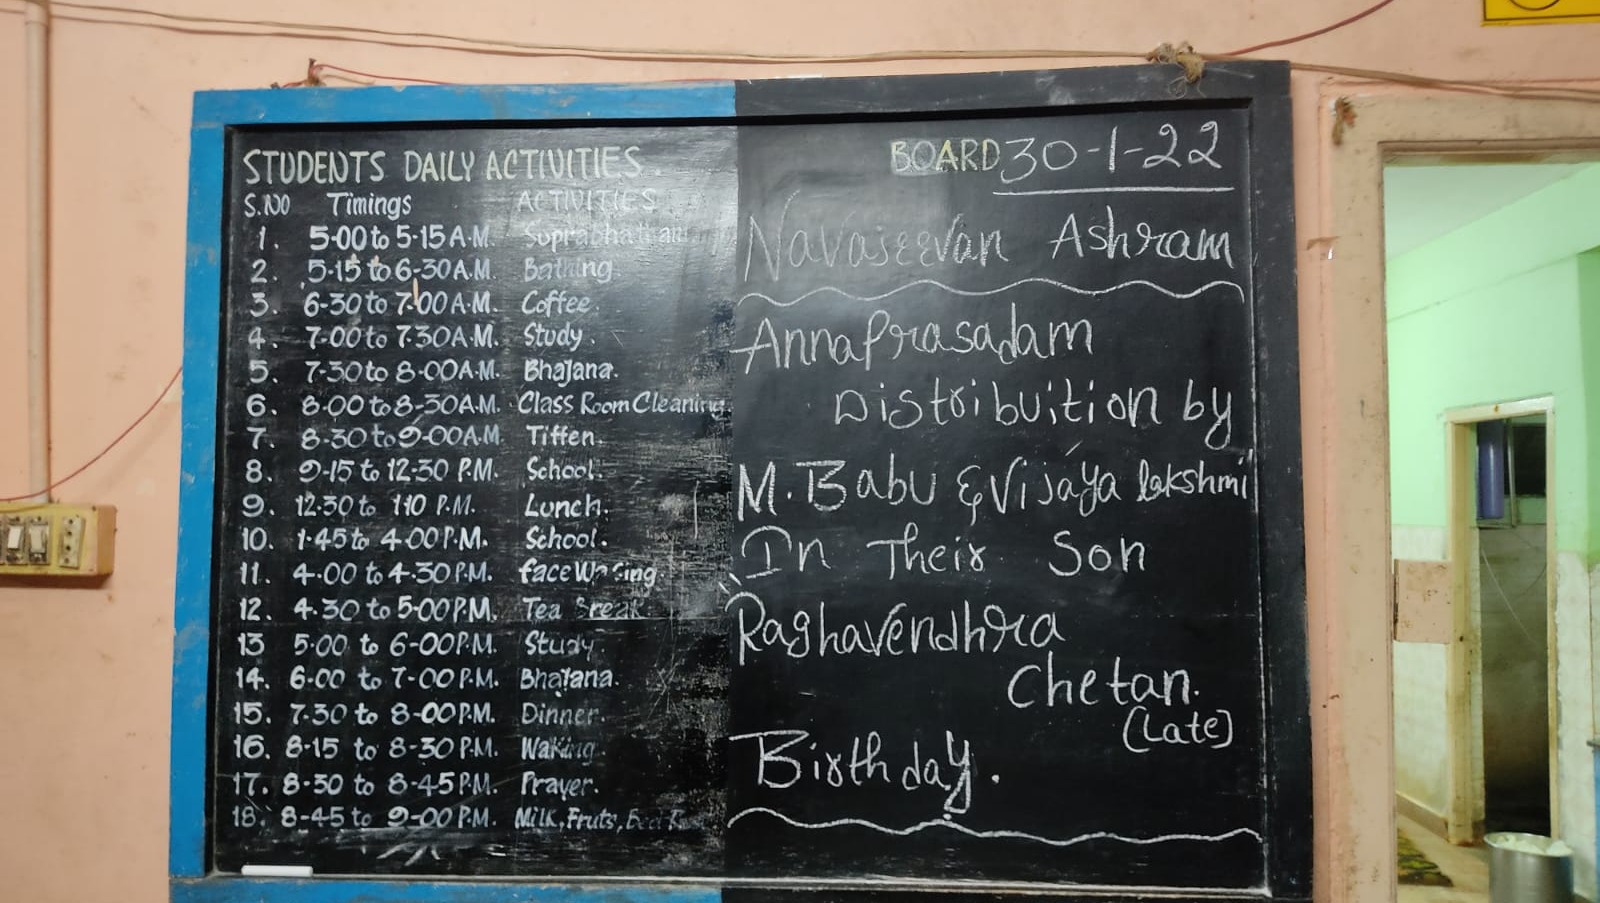 STUDENTS DAILY ACTIVITIES.
S.NO Timings ACTIVITIES
1. 5-00 to 5-15 A.M. Suprabhatham
2. 5-15 to 6-30 A.M. Bathing.
3. 6-30 to 7-00 A.M. Coffee.
4. 7-00 to 7.30 A.M. Study.
5. 7-30 to 8-00 A.M. Bhajana.
6. 8-00 to 8-30 A.M. Class Room Cleaning.
7. 8-30 to 9-00 A.M. Tiffen.
8. 9-15 to 12-30 P.M. School.
9. 12-30 to 1-10 P.M. Lunch.
10. 1-45 to 4-00 P.M. School.
11. 4-00 to 4-30 P.M. face
12. 4-30 to 5-00 P.M. Tea Break
13 5-00 to 6-00 P.M. Study.
14. 6-00 to 7-00 P.M. Bhajana.
15. 7-30 to 8-00 P.M. Dinner.
16. 8-15 to 8-30 P.M. Waking.
17. 8-30 to 8-45 P.M. Prayer.
18. 8-45 to 9-00 P.M. Milk, Fruts,
BOARD 30-1-22
Navajeevan Ashram
Annaprasadam
Distribuition by
M. Babu & Vijaya lakshmi
In Their Son
Raghavendhra
Chetan.
(Late)
Birthday.